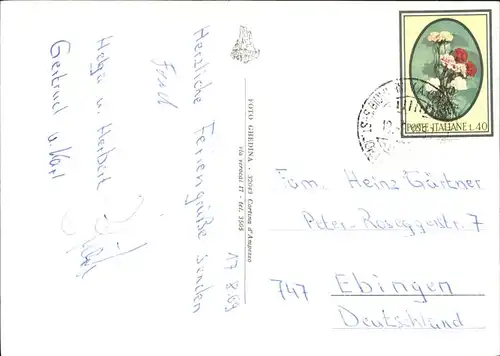 17.8.69
Herzliche Feriengrüße senden
Helga u. Herbert
Gertrud u. Karl
FOTO GHEDINA - 32043 Cortina d'Ampezzo
POSTE ITALIANE L.40
Fam. Heinz Gärtner
Peter-Roseggerstr. 7
747 Ebingen
Deutschland